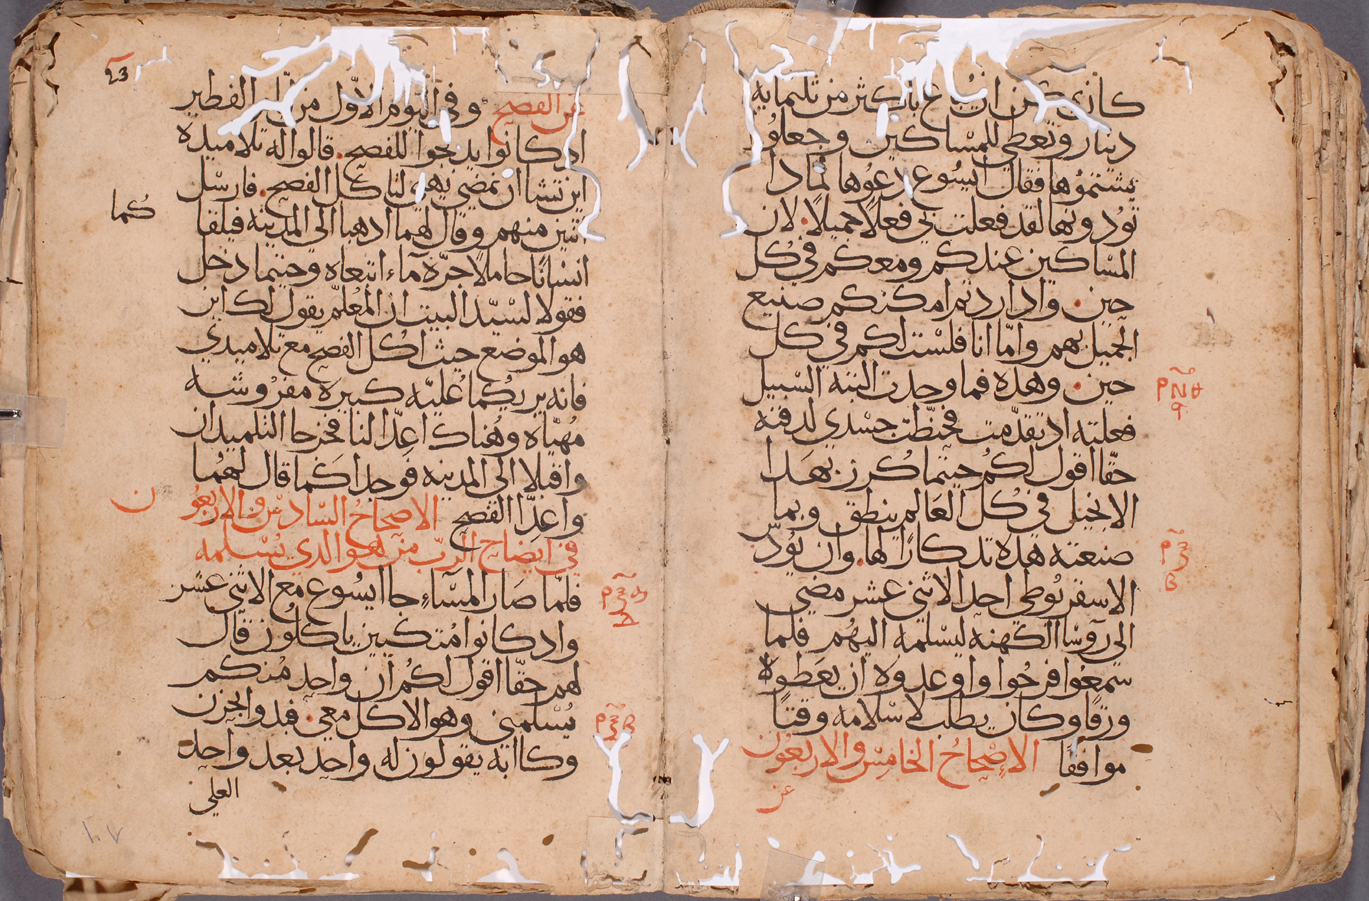 كان يمكن ان يباع باكثر من ثلثمايه
دينار وتعطي للمساكين وجعلو
يشتموها فقال يسوع دعوها لماذا
تودونها لقد فعلت بي فعلاً جميلاً. لان
المساكين عندكم ومعكم في كل
حين. واذا اردتم امكنكم صنيع
الجميل بهم واما انا فلست لكم في كل
حين. وهذه فما وجدت اليه السبيل
فعلته اذ تقدمت فحنطت جسدي لدفنه
حقاً اقول لكم حيثما كرز بهذا
الانجيل في كل العالم ينطق وبما
صنعته هذه تدكاراً لها. وان يودس
الاسقريوطي احد الاثنى عشر مضى
الى روسا الكهنه ليسلمه اليهم فلما
سمعوا فرحوا واوعدوه ان يعطوه
ورقاً وكان يطلب لاسلامه وقتاً
موافقاً الاصحاح الخامس والاربعون
عن
ΡΝθ
ϥ
عن الفصح وفي اليوم الاول من الفطير
اذ كانوا يدبحوا للفصح. قالوا له تلاميذه
اين تشا ان نمضي نهي لنا كل الفصح. فارسل
اثنين منهم وقال لهما ادهبا الى المدينه فيلقا
كما
انساناً حاملاً جرة ماء اتبعاه وحيثما دخل
فقولا لسيد البيت ان المعلم يقول لك اين
هو الموضع حيث اكل الفصح مع تلاميدي
فانه يريكما عليه كبيرة مفروشه
مهياه وهناك اعدا لنا فخرجا التلميدان
واقبلا الى المدينه فوجدا كما قال لهما
واعدا الفصح الاصحاح السادس والاربعون
في ايضاح الرب من هو الدي يسلمه
فلما صار المساء جا ايسوع مع الاثنى عشر
وادكانوا متكيين ياكلون قال
لهم حقاً اقول لكم ان واحد منكم
يسلمني وهو الاكل معي. فبدوا بحزن
وكابه يقولون له واحد بعد واحد
العلي
١٠٧